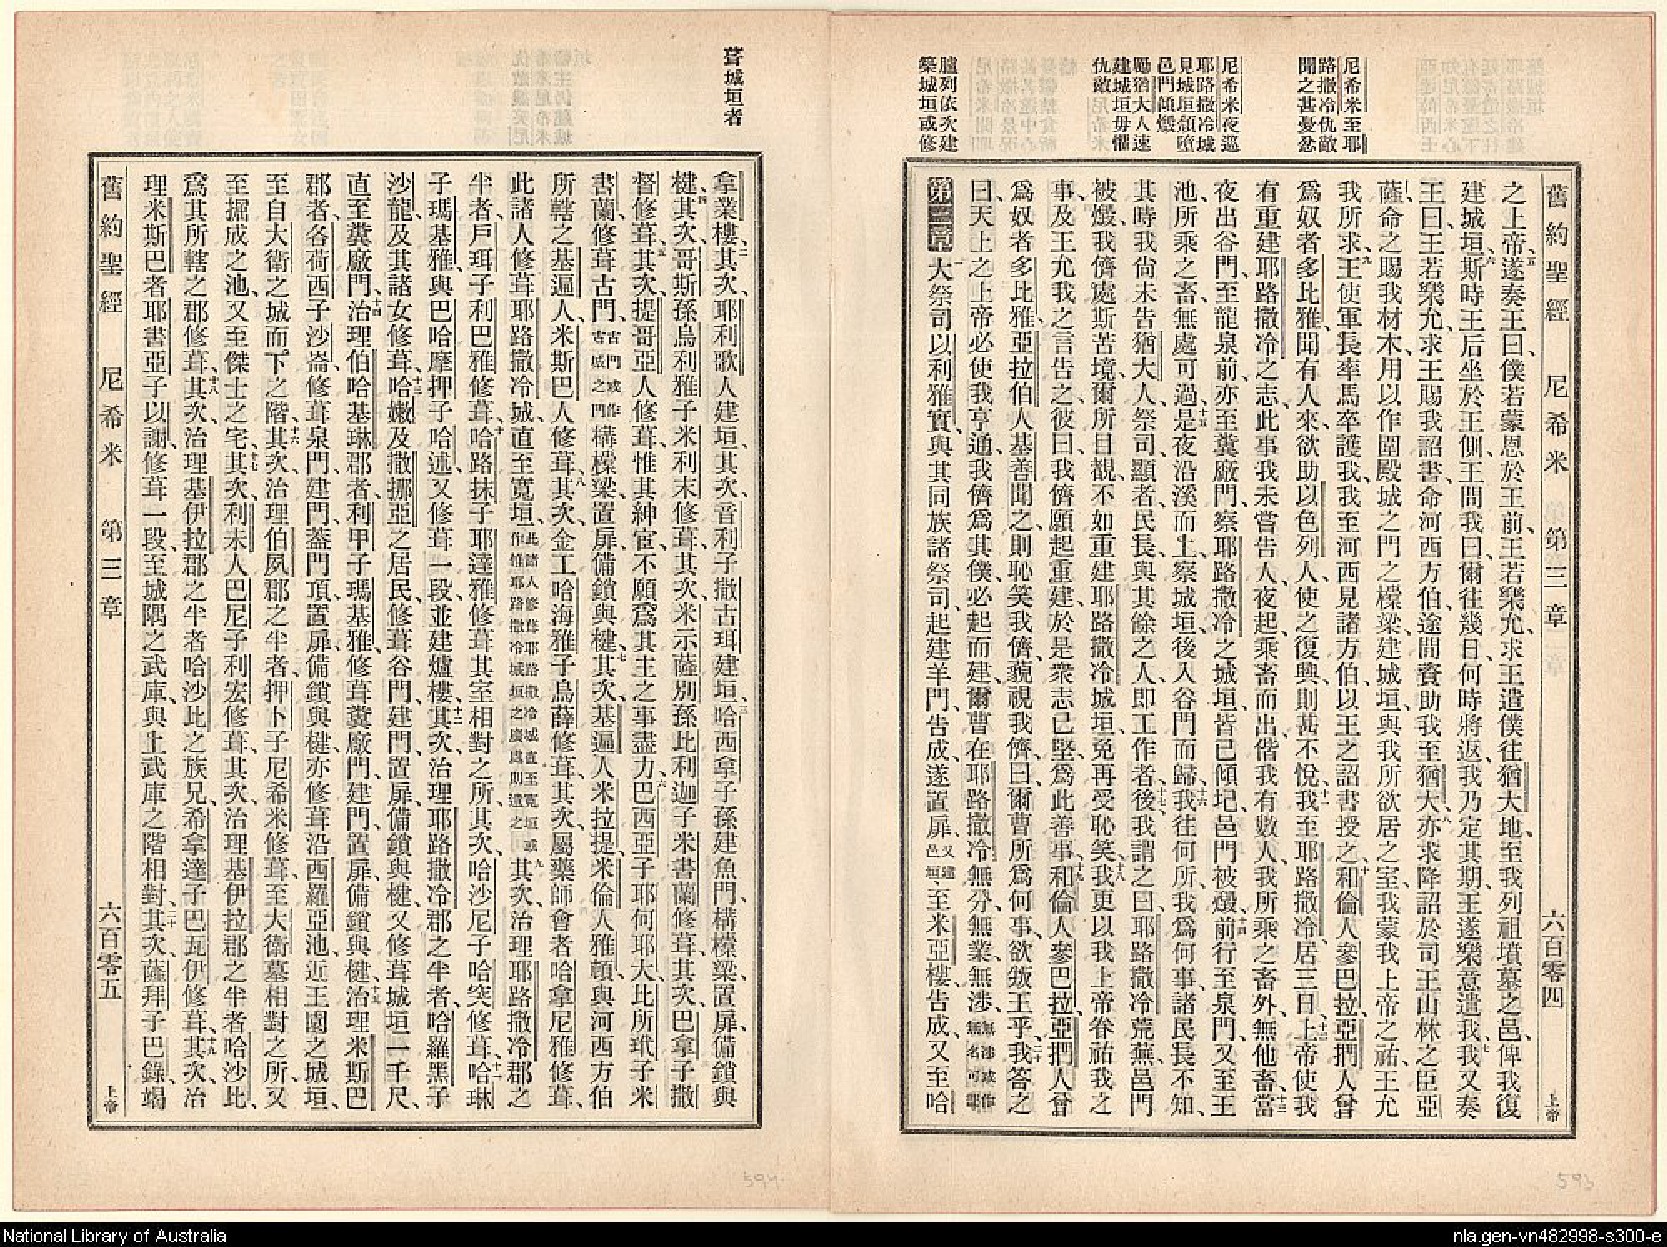 舊約聖經 尼希米 第三章 六百零四 上帝
尼希米至耶
路撒冷仇敵
聞之甚憂忿
尼希米夜巡
耶路撒冷城
見城垣頹墮
邑門傾燬
勵猶大人速
建城垣毋懼
仇敵
臚列依次建
築城垣或修
之上帝、遂奏王曰、僕若蒙恩於王前、王若樂允、求王遣僕往猶大地、至我列祖墳墓之邑、俾我復
建城垣、斯時王后坐於王側、王問我曰、爾往幾日、何時將返、我乃定其期、王遂樂意遣我、我又奏
王曰、王若樂允、求王賜我詔書、命河西方伯、途間資助我至猶大、亦求降詔於司王山林之臣亞
薩、命之賜我材木、用以作圍殿城之門之檁梁、建城垣、與我所欲居之室、我蒙我上帝之祐、王允
我所求、王使軍長率馬卒護我、我至河西、見諸方伯、以王之詔書授之、和倫人參巴拉、亞捫人曾
為奴者多比雅、聞有人來欲助以色列人、使之復興、則甚不悅、我至耶路撒冷、居三日、上帝使我
有重建耶路撒冷之志、此事我未嘗告人、夜起乘畜而出、偕我有數人、我所乘之畜外、無他畜、當
夜出谷門、至龍泉前、亦至糞廠門、察耶路撒冷之城垣、皆已傾圮、邑門被燬、前行至泉門、又至王
池、所乘之畜、無處可過、是夜沿溪而上、察城垣後、入谷門而歸、我往何所、我為何事、諸民長不知、
其時我尚未告猶大人、祭司、顯者、民長、與其餘之人、即工作者、後我謂之曰、耶路撒冷荒蕪、邑門
被燬、我儕處斯苦境、爾所目覩、不如重建耶路撒冷城垣、免再受恥笑、我更以我上帝眷祐我之
事、及王允我之言告之、彼曰、我儕願起重建、於是眾志已堅、為此善事、和倫人參巴拉、亞捫人曾
為奴者多比雅、亞拉伯人基善聞之、則恥笑我儕、藐視我儕曰、爾曹所為何事、欲叛王乎、我答之
曰、天上之上帝、必使我亨通、我儕為其僕、必起而建、爾曹在耶路撒冷、無分無業無涉、無涉或作無名可記
第三章 大祭司以利雅實、與其同族諸祭司、起建羊門、告成、遂置扉、又建邑垣、至米亞樓告成、又至哈
舊約聖經 尼希米 第三章 六百零五 上帝
葺城垣者
拿業樓、其次、耶利歌人建垣、其次、音利子撒古珥建垣、哈西拿子孫建魚門、構檁梁、置扉、備鎖與
楗、其次、哥斯孫烏利雅子米利末修葺、其次、米示薩別孫比利迦子米書蘭修葺、其次、巴拿子撒
督修葺、其次、提哥亞人修葺、惟其紳宦不願為其主之事盡力、巴西亞子耶何耶大、比所玳子米
書蘭、修葺古門、古門或作古城之門構檁梁、置扉、備鎖與楗、其次、基遍人米拉提、米倫人雅頓、與河西方伯
所轄之基遍人米斯巴人修葺、其次、金工哈海雅子烏薛修葺、其次、屬藥師會者哈拿尼雅修葺、
此諸人修葺耶路撒冷城、直至寬垣、其次、治理耶路撒冷郡之
半者、戶珥子利巴雅修葺、哈路抹子耶達雅、修葺其室相對之所、其次、哈沙尼子哈突修葺、哈琳
子瑪基雅、與巴哈摩押子哈述、又修葺一段、並建爐樓、其次、治理耶路撒冷郡之半者、哈羅黑子
沙龍、及其諸女修葺、哈嫩及撒挪亞之居民、修葺谷門、建門、置扉、備鎖與楗、又修葺城垣一千尺、
直至糞廠門、治理伯哈基琳郡者、利甲子瑪基雅、修葺糞廠門、建門、置扉、備鎖與楗、治理米斯巴
郡者、各荷西子沙崙、修葺泉門、建門、蓋門頂、置扉、備鎖與楗、亦修葺沿西羅亞池近王園之城垣、
至自大衛之城而下之階、其次、治理伯夙郡之半者、押卜子尼希米修葺、至大衛墓相對之所、又
至掘成之池、又至傑士之宅、其次、利未人巴尼子利宏修葺、其次、治理基伊拉郡之半者哈沙比、
為其所轄之郡修葺、其次、治理基伊拉郡之半者、哈沙比之族兄、希拿達子巴瓦伊修葺、其次、治
理米斯巴者、耶書亞子以謝、修葺一段、至城隅之武庫、與上武庫之階相對、其次、薩拜子巴錄、竭
National Library of Australia
nla.gen-vn482998-s300-e